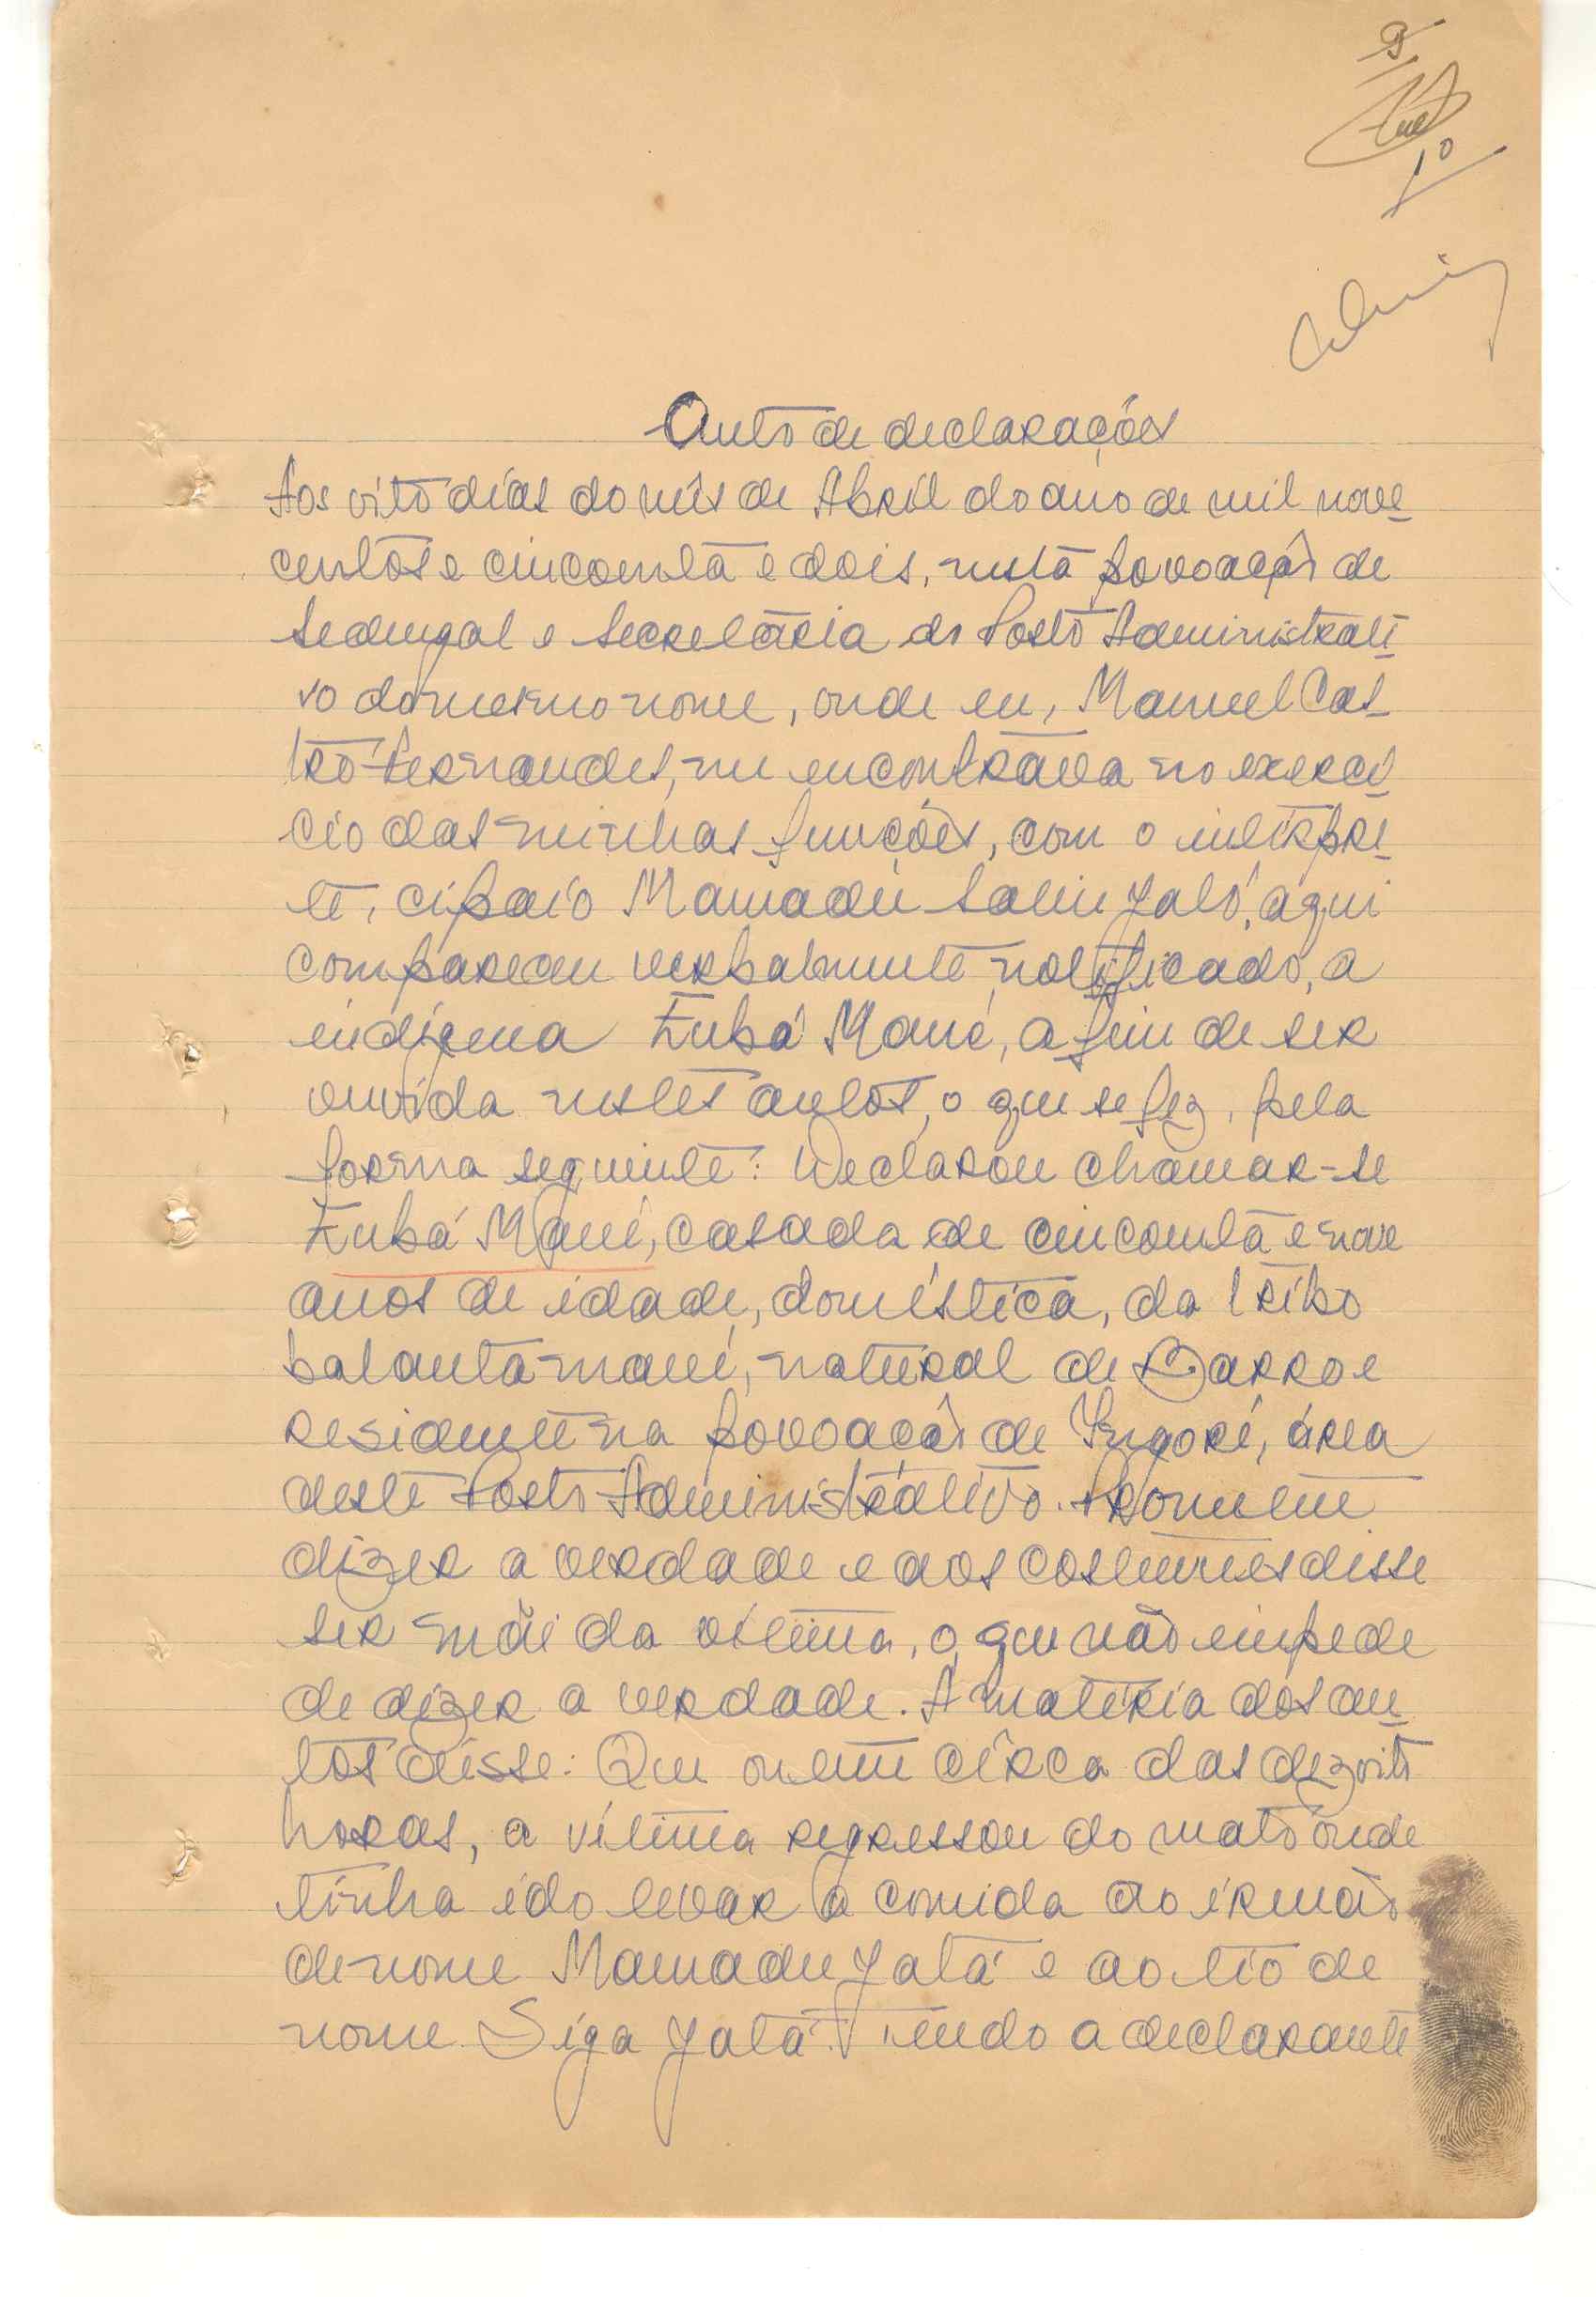 Auto de declarações
Aos oito dias do mês de Abril do ano de mil nove
centos e cincoenta e dois, nesta povoação de
Sedengal e Secretária do Posto Administrati
vo do mesmo nome, onde eu, Manuel Cas
tro Fernandes, me encontrava no exercí
cio das minhas funções, com o intérpre
te, cipaio Mamadú Saliu Jaló, aqui
compareceu verbalmente notificado, a
indígena Zubá Mané, a fim de ser
ouvida nestes autos, o que se fez, pela
forma seguinte: Declarou chamar-se
Zubá Mané, casada de cincoenta e nove
anos de idade, doméstica, da tribo
balanta mané, natural de Barro e
residente na povoação de Ingoré, área
deste Posto Administrativo. Prometeu
dizer a verdade e aos costumes disse
ser mãe da vítima, o que não impede
de dizer a verdade. Á matéria dos au
tos disse: Que ontem cêrca das dezoito
horas, a vítima regressou do mato onde
tinha ido levar a comida ao irmão
de nome Mamadu Jatá e ao tio de
nome Siga Jatá. Tendo a declarante